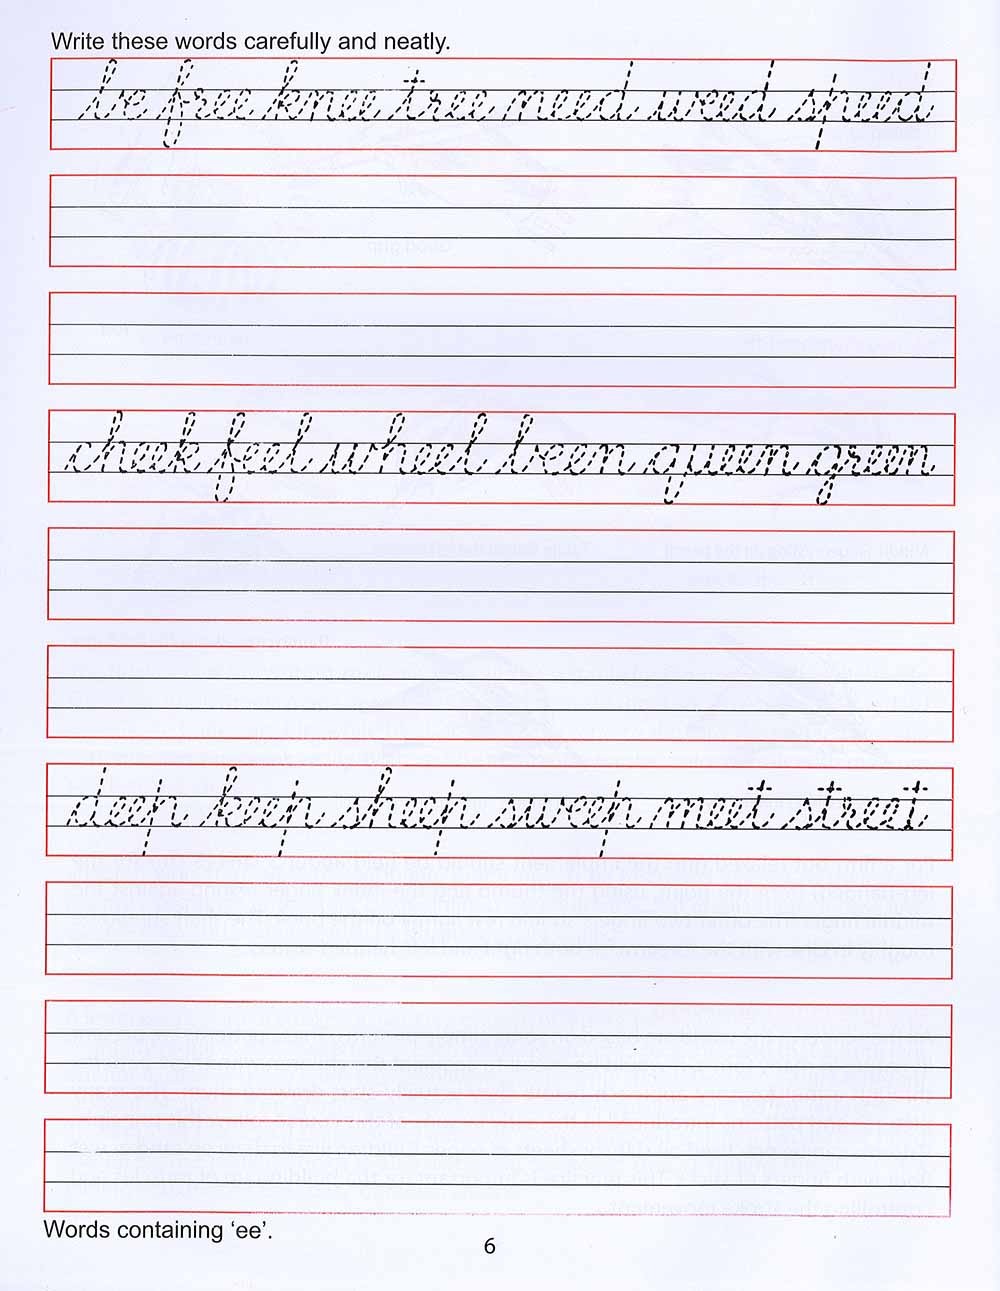 Write these words carefully and neatly.
be free knee tree need weed speed
cheek feel wheel been queen green
deep keep sheep sweep meet street
Words containing ‘ee’.
6